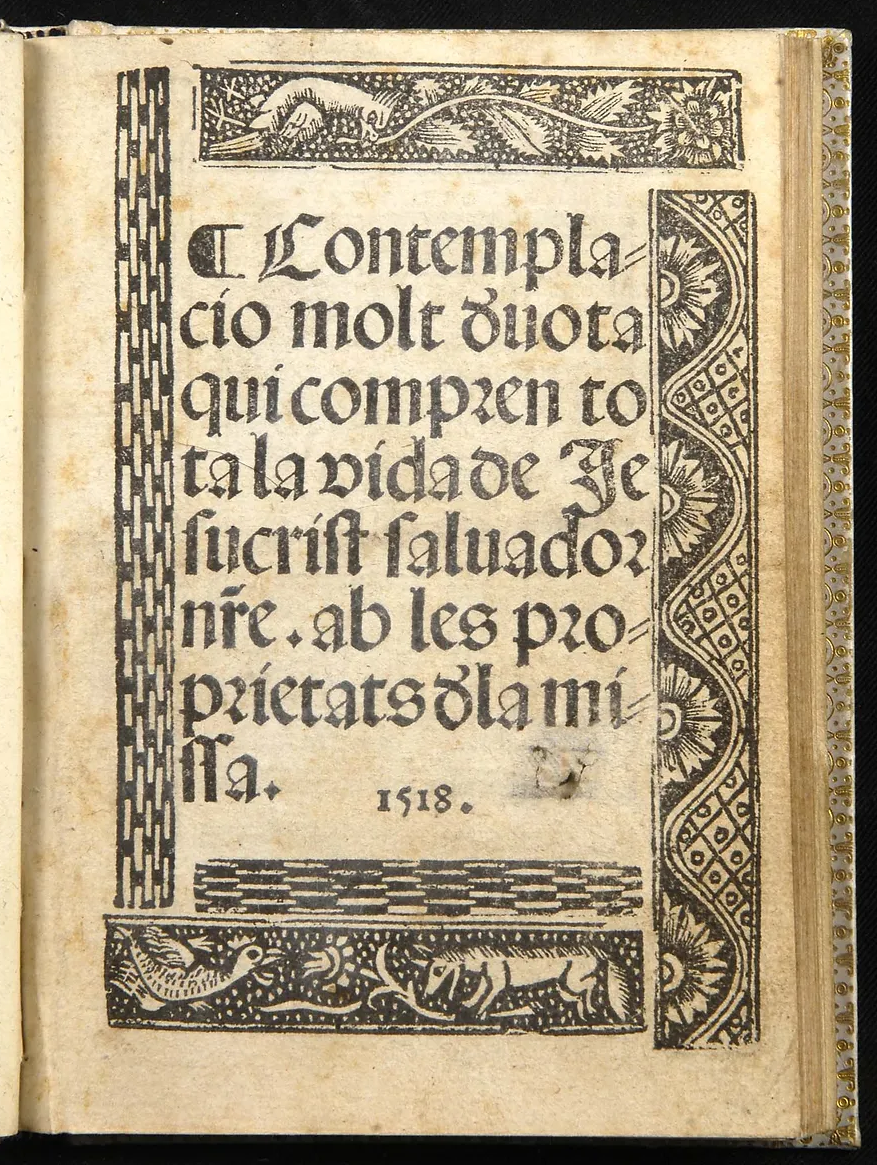 ¶ Contempla-
cio molt d̄uota
qui compren to
ta la vida de Je
sucrist saluador
nr̄e. ab les pro-
prietats d̄la mi-
ssa.
1518.